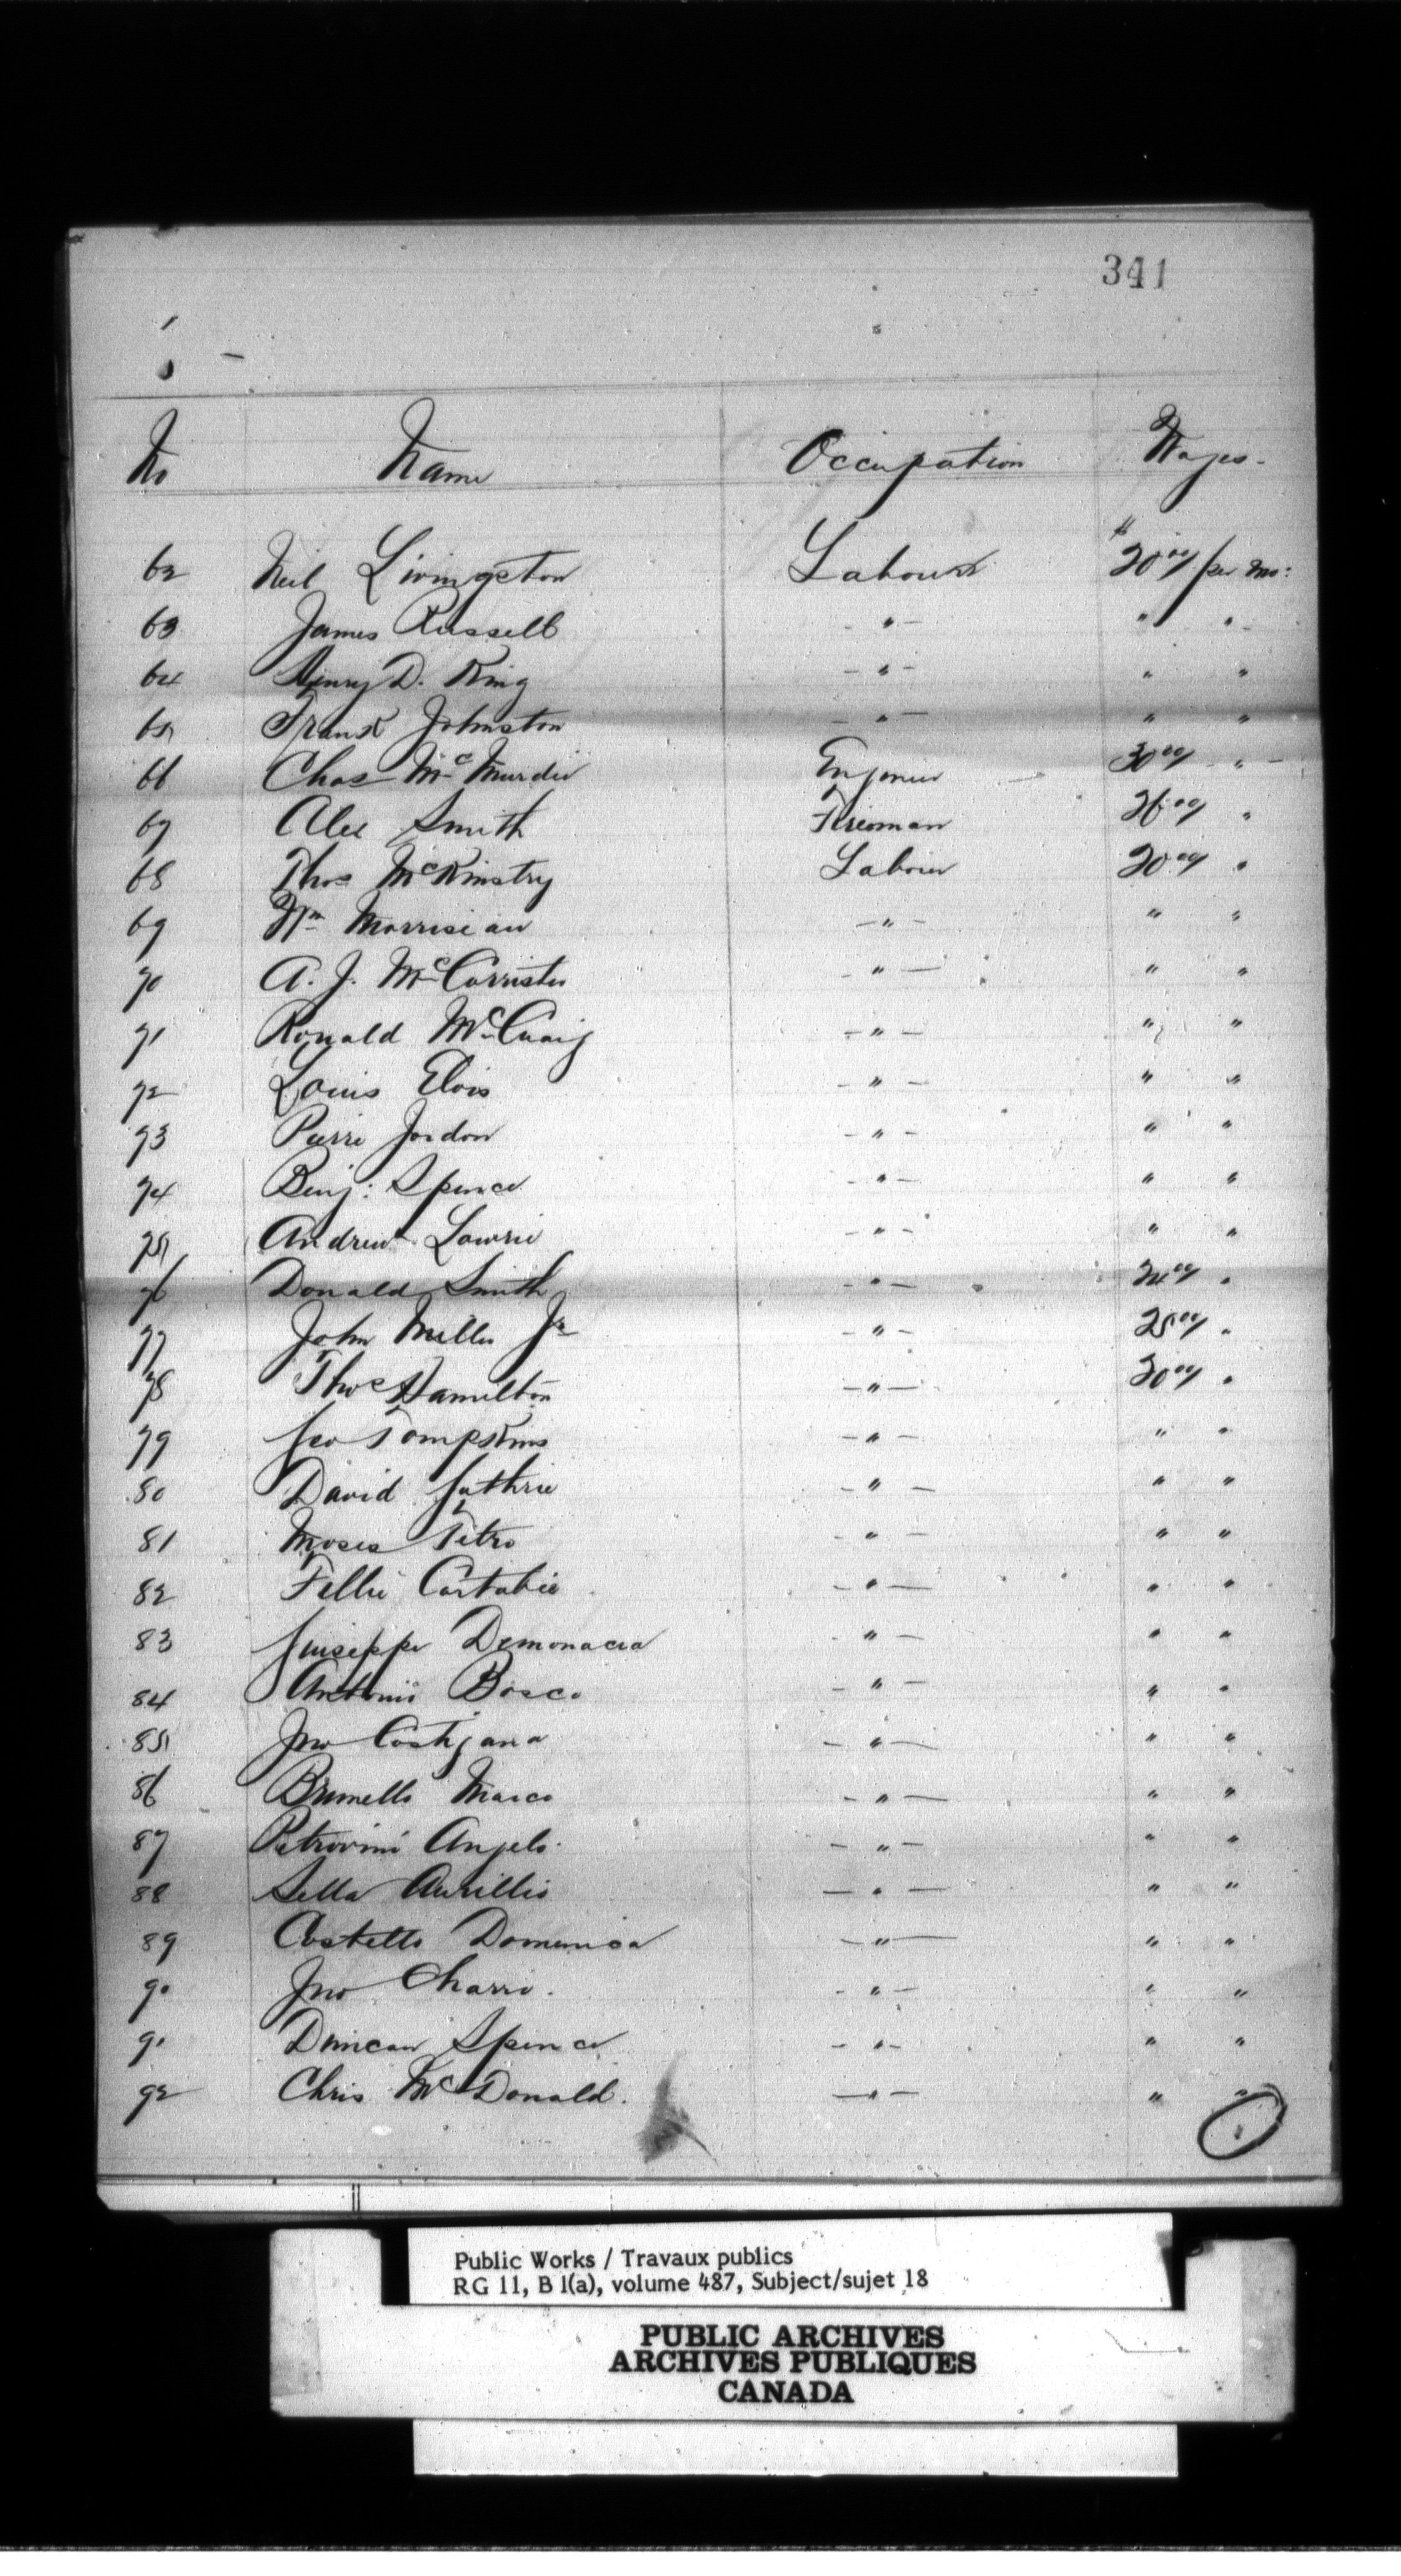 341
No Name Occupation Wages.
62 Neil Livingston Labourer $20.00/ per mo:
63 James Russell - " - " " -
64 Henry D. King - " - " "
65 Frank Johnston - " - " "
66 Chas McMurdie Engineer 30.00/ - " -
67 Alex Smith Fireman 26.00/ "
68 Thos McKinstry Labour 20.00/ "
69 Wm Morriseau - " - " "
70 A. J. McCorrister - " - " "
71 Ronald McCuaig - " - " "
72 Louis Elois - " - " "
73 Pierre Jordon - " - " "
74 Benj: Spence - " - " "
75 Andrew Lowrie - " - " "
76 Donald Smith - " - 24.00/ "
77 John Miller Jr - " - 25.00/ "
78 Thos Hamilton - " - 20.00/ "
79 Geo Tompkins - " - " "
80 David Guthrie - " - " "
81 Moses Tetro - " - " "
82 - " - " "
83 Guiseppe - " - " "
84 Antonio Bosco - " - " "
85 Jno Costigana - " - " "
86 Brunello Marco - " - " "
87 Petrovini Angelo - " - " "
88 Sella Aurillio - " - " "
89 Costello Domenica - " - " "
90 Jno Charro. - " - " "
91 Duncan Spence - " - " "
92 Chris McDonald. - " - " "
Public Works / Travaux publics
RG 11, B 1(a), volume 487, Subject/sujet 18
PUBLIC ARCHIVES
ARCHIVES PUBLIQUES
CANADA